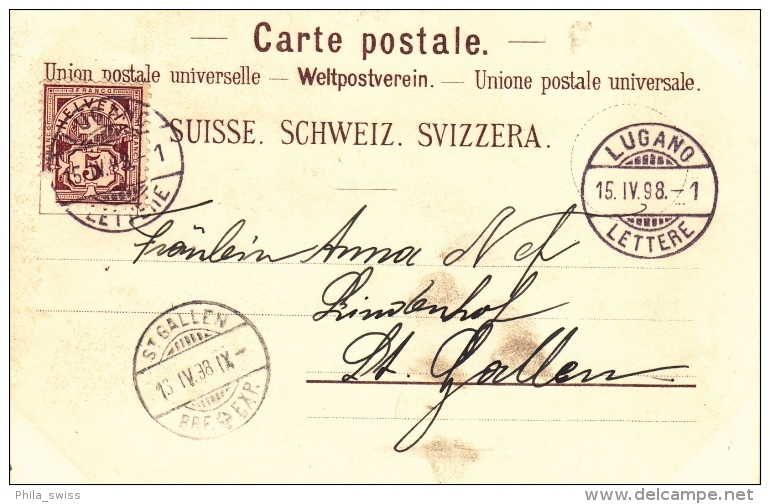 Carte postale.
Union postale universelle — Weltpostverein. — Unione postale universale.
SUISSE. SCHWEIZ. SVIZZERA.
FRANCO
HELVETIA
5
15.IV.98.-1
LETTERE
LUGANO
15.IV.98.-1
LETTERE
Fräulein Anna Nef
Lindenhof
St. Gallen
ST GALLEN
IV.98.IX-
BRF. EXP.
Phila_swiss
delcampe.net